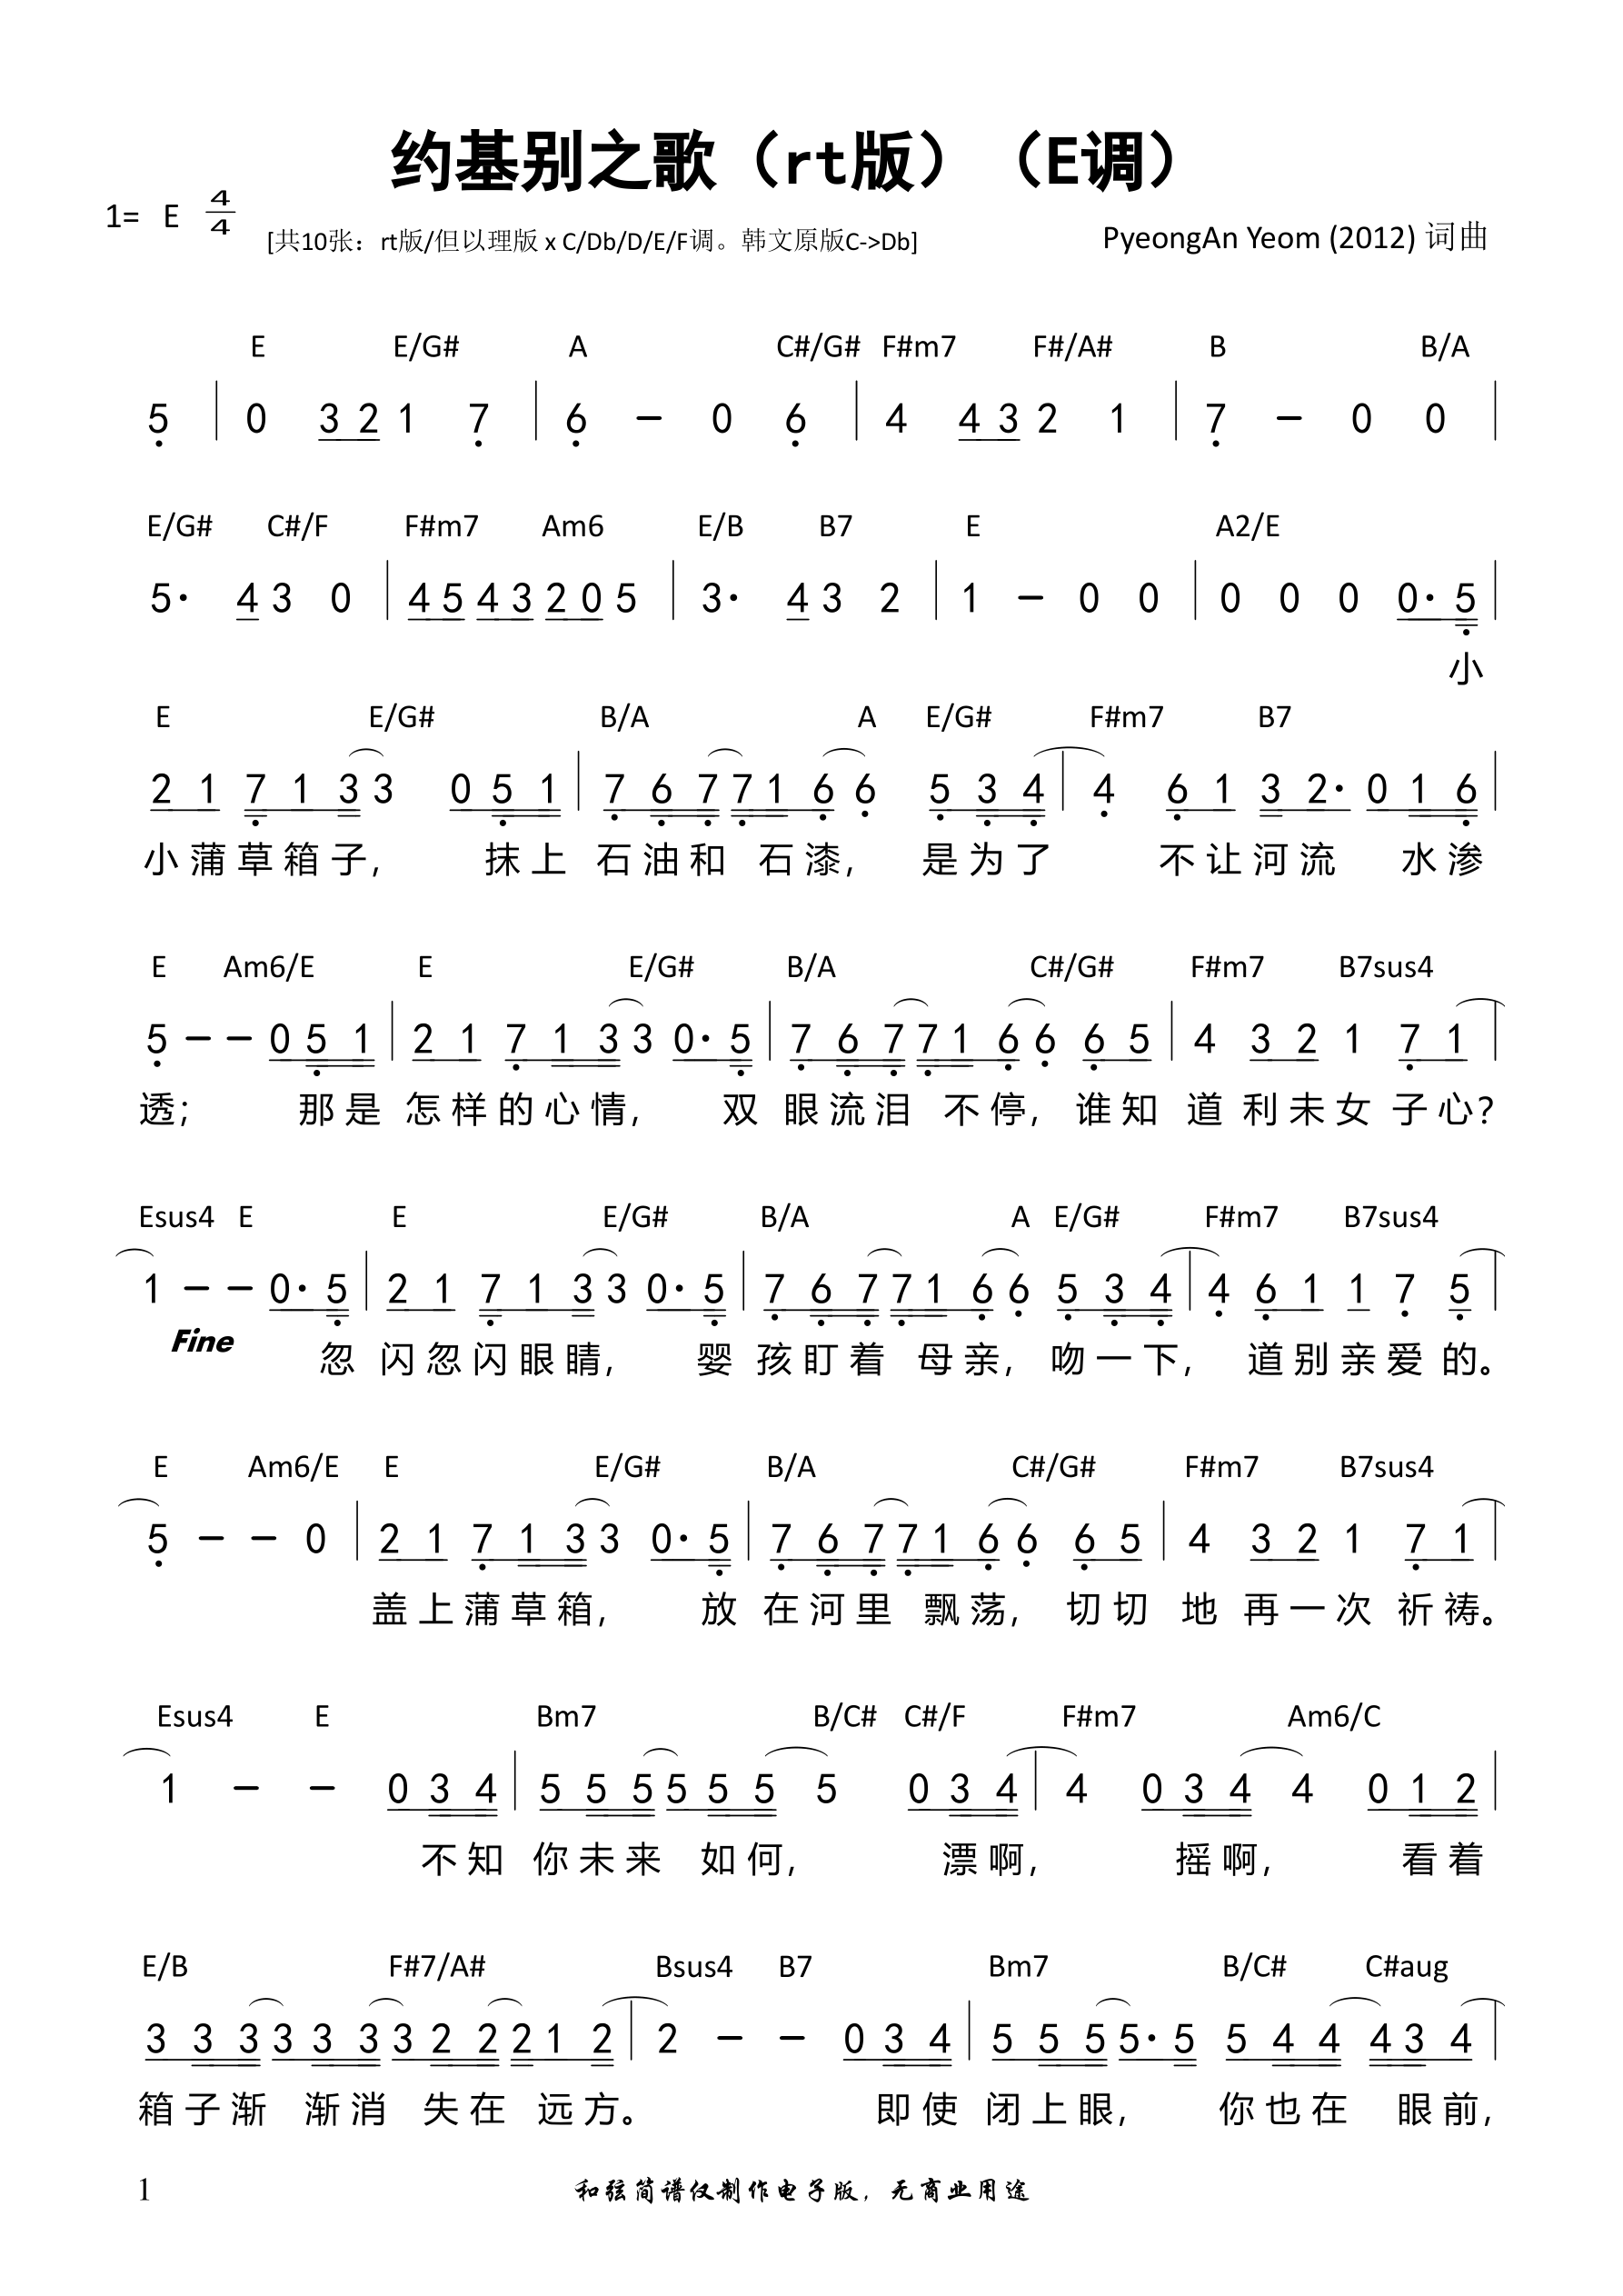 约基别之歌（rt版）（E调）
1= E 4/4
[共10张：rt版/但以理版 x C/Db/D/E/F调。韩文原版C->Db]
PyeongAn Yeom (2012) 词曲
E E/G# A C#/G# F#m7 F#/A# B B/A
5 | 0 3 2 1 7 | 6 - 0 6 | 4 4 3 2 1 | 7 - 0 0 |
E/G# C#/F F#m7 Am6 E/B B7 E A2/E
5· 4 3 0 | 4 5 4 3 2 0 5 | 3· 4 3 2 | 1 - 0 0 | 0 0 0 0· 5 |
小
E E/G# B/A A E/G# F#m7 B7
2 1 7 1 3 3 0 5 1 | 7 6 7 7 1 6 6 5 3 4 | 4 6 1 3 2· 0 1 6 |
小蒲草箱子, 抹上 石油和 石漆, 是为了 不让河流 水渗
E Am6/E E E/G# B/A C#/G# F#m7 B7sus4
5 - - 0 5 1 | 2 1 7 1 3 3 0· 5 | 7 6 7 7 1 6 6 6 5 | 4 3 2 1 7 1 |
透; 那是 怎样的心情, 双 眼流泪 不停, 谁知 道 利未女 子心?
Esus4 E E E/G# B/A A E/G# F#m7 B7sus4
1 - - 0· 5 | 2 1 7 1 3 3 0· 5 | 7 6 7 7 1 6 6 5 3 4 | 4 6 1 1 7 5 |
Fine
忽 闪忽闪眼睛, 婴 孩盯着 母亲, 吻一下, 道别亲爱 的。
E Am6/E E E/G# B/A C#/G# F#m7 B7sus4
5 - - 0 | 2 1 7 1 3 3 0· 5 | 7 6 7 7 1 6 6 6 5 | 4 3 2 1 7 1 |
盖上蒲草箱, 放 在河里 飘荡, 切切 地 再一次 祈祷。
Esus4 E Bm7 B/C# C#/F F#m7 Am6/C
1 - - 0 3 4 | 5 5 5 5 5 5 5 0 3 4 | 4 0 3 4 4 0 1 2 |
不知 你未来 如何, 漂啊, 摇啊, 看着
E/B F#7/A# Bsus4 B7 Bm7 B/C# C#aug
3 3 3 3 3 3 3 2 2 2 1 2 | 2 - - 0 3 4 | 5 5 5 5· 5 5 4 4 4 3 4 |
箱子渐 渐消 失在 远方。 即使 闭上眼, 你也在 眼前,
1
和弦简谱仅制作电子版, 无商业用途